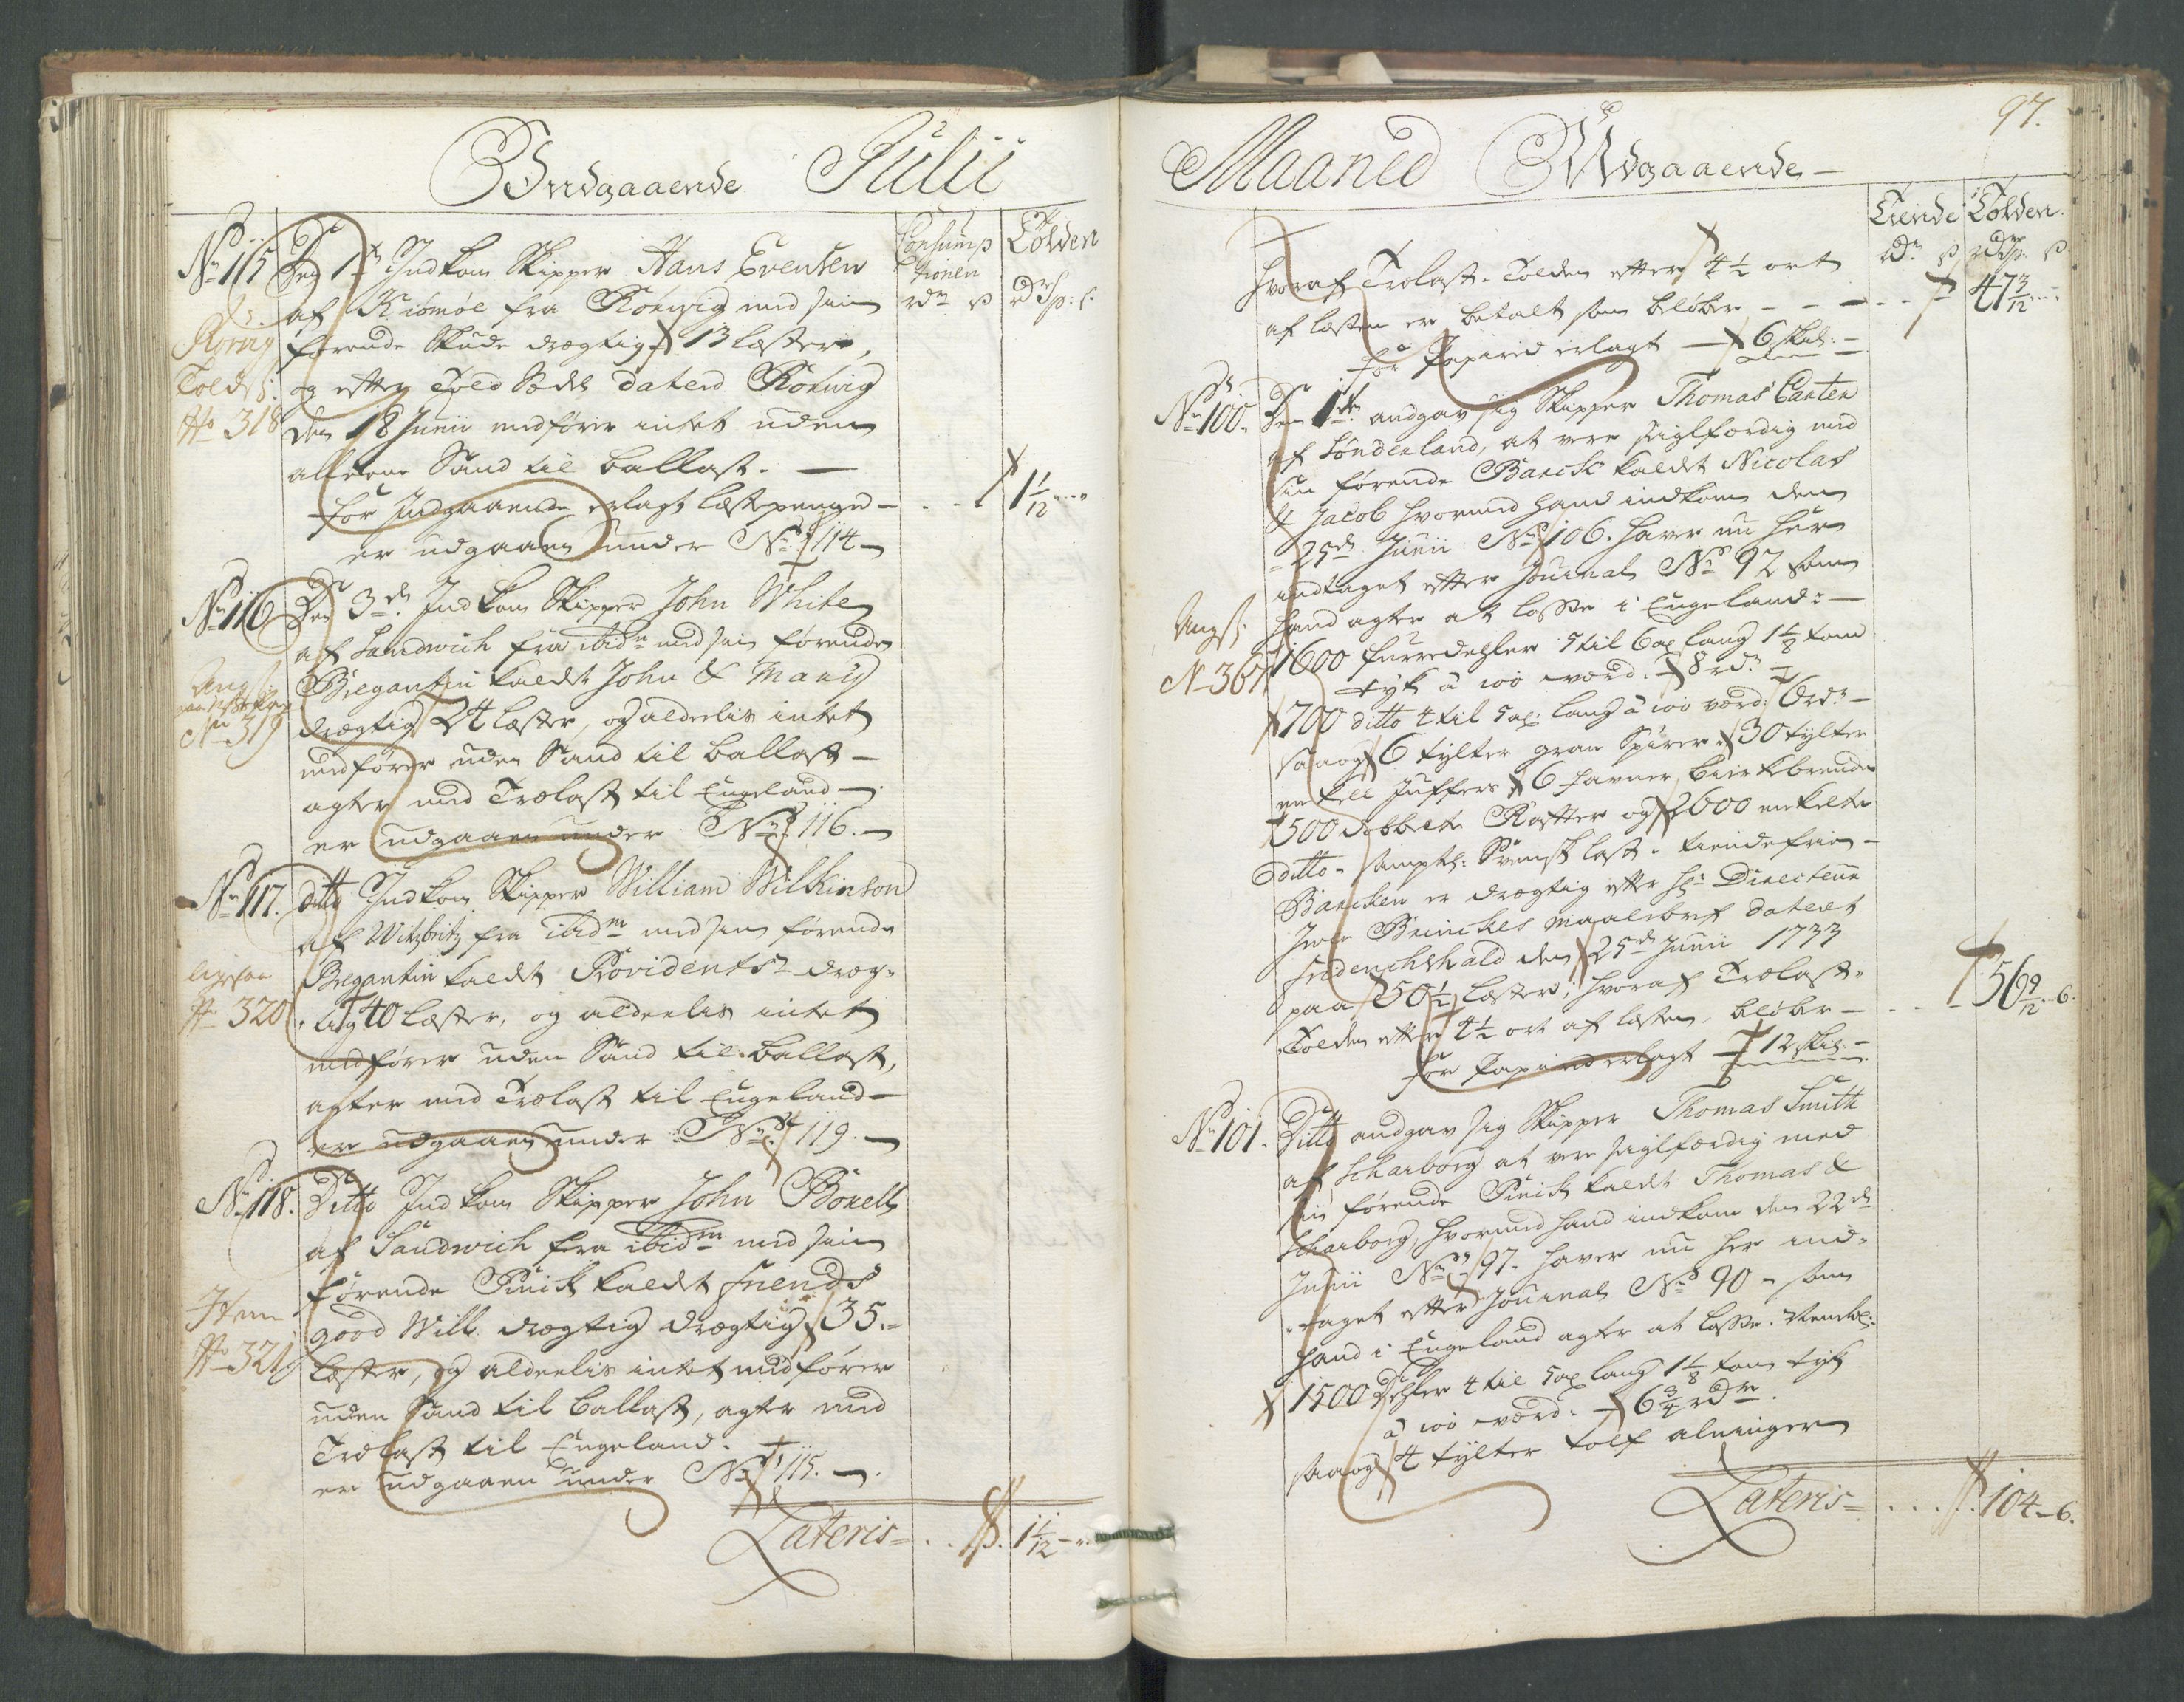 Indgaaende Julii
Consump
tionen
rdr ß
Tolden
rdr sp: ß
No 115
Den 1te Indkom Skipper Hans Evensen
af Kiømøe fra Rørvig med sin
førende Skude drægtig 13 læster,
og efter Told Sedel dateret Rørvig
den 18 Junii medfører intet uden
alleene Sand til Ballast. —
for Indgaaende erlagt læstepenge — 1 1/12
er udgaaen under No 114 —
Rørvig
Tolds:
No 318
No 116
Den 3de Indkom Skipper John White
af Sandwich fra ibidm med sin førende
Bregantin kaldet John & Mary
drægtig 24 læster, og aldeelis intet
medfører uden Sand til Ballast —
agter med Trælast til Engeland —
er udgaaen under No 116. —
No 319
No 117.
Ditto Indkom Skipper William Wilkinson
af Witzbritz fra ibidm med sin førende
Bregantin kaldet Providents dræg-
tig 40 læster, og aldeelis intet
medfører uden Sand til Ballast,
agter med Trælast til Engeland —
er udgaaen under No 119. —
ligesaa
No 320
No 118.
Ditto Indkom Skipper John Bonell
af Sandwich fra ibidm med sin
førende Pinick kaldet Friends
good Will drægtig drægtig 35
læster, og aldeelis intet medfører
uden Sand til Ballast, agter med
Trælast til Engeland.
er udgaaen under No 115. —
Item
No 321
Lateris 1 1/12
97.
Maaned Udgaaende
Tiende
rdr ß
Tolden
rdr sp. ß
hvoraf Trælast-Tolden efter 4 1/2 ort
af læsten er betalt som beløber — 47 3/12
for Papiret erlagt — 6 skil: —
No 100.
Den 1te angav sig Skipper Thomas Carter
af Sønderland, at vere seiglfærdig med
sin førende Barck kaldet Nicolas
& Jacob hvormed hand indkom den
25de Junii No 106. haver nu her
indtaget efter Journal No 92 som
hand agter at losse i Engeland: —
1600 furredehler 5 til 6 al lang 1 1/8 tom
tyk à 100 værd. 8 rdr
700 ditto 4 til 5 al: lang à 100 værd 6 rdr —
saa og 6 tylter gran Spirer 30 tylter
enkelt Juffers 6 favner birkebrende
500 dobbelte Raftter og 2600 enkelte
ditto — samptl: Svensk last. tiendefrie —
Barcken er drægtig efter Hr Directeur
Iver Brinckes maalebref dateret
Friderichshald den 25de Junii 1733
paa 50 1/2 læster, hvoraf Trælast-
Tolden efter 4 1/2 ort af læsten, beløber — 56 9/12 - 6.
for Papiir erlagt — 12 skil: —
No 367
No 101.
Ditto angav sig Skipper Thomas Smith
af Scharborg at vere seiglfærdig med
sin førende Pinick kaldet Thomas &
Scharborg, hvormed hand indkom den 22de
Junii No 97. haver nu her ind-
taget efter Journal No 90 — som
hand i Engeland agter at losse. Nemlig:
1500 Dehler 4 til 5 al lang 1 1/8 tom tyk
à 100 værd: 6 3/4 rdr
saa og 4 tylter tolf alninger
Lateris 104 - 6.